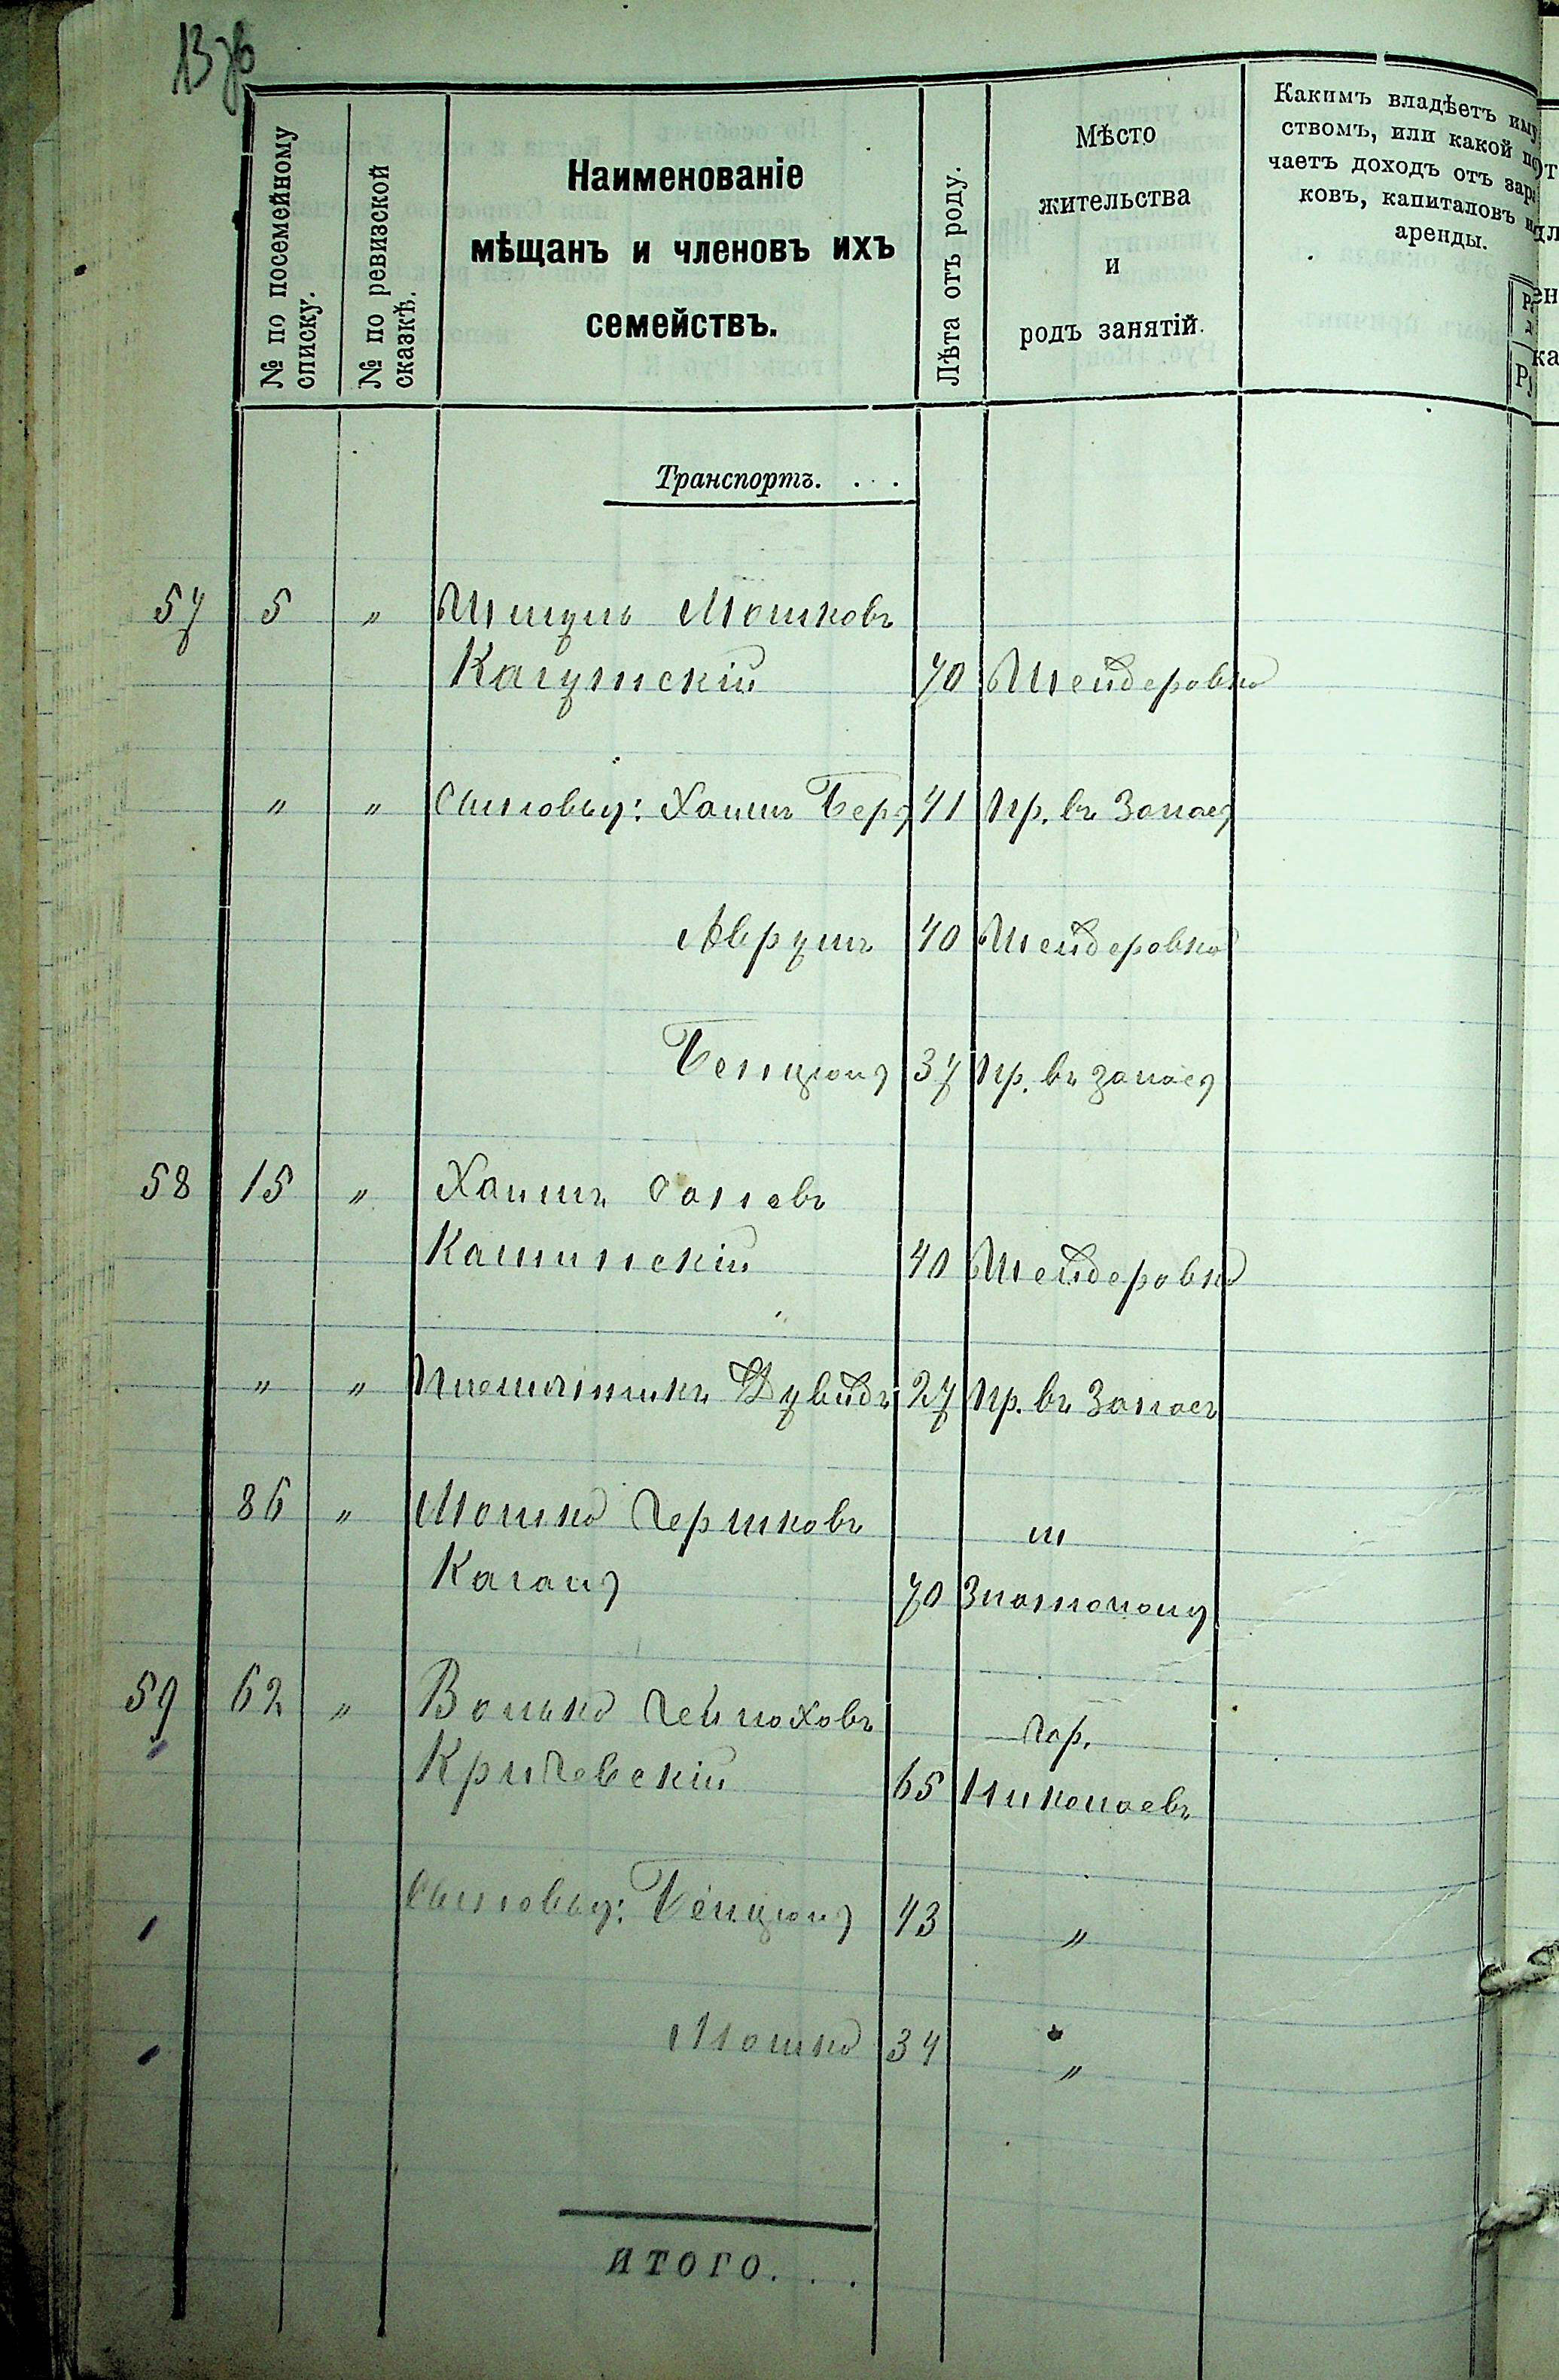 13 об
№ по посемейному списку.
№ по ревизской сказкѣ.
Наименованіе
мѣщанъ и членовъ ихъ
семействъ.
Лѣта отъ роду.
Мѣсто
жительства
и
родъ занятій.
Какимъ владѣетъ иму
ствомъ, или какой по
чаетъ доходъ отъ зара
ковъ, капиталовъ и
аренды.
Транспортъ. . . .
57 5 „ Шмуль Мошковъ
70 Шендеровка
„ „ Сыновья: Хаимъ Беръ 41 Пр. въ Запасъ
Аврумъ 40 Шендеровка
Бенціонъ 37 Пр. въ запасъ
58 15 „ Хаимъ
Каминскій 40 Шендеровка
„ „ Племянникъ Дувидъ 27 Пр. въ Запасъ
86 „ Мошко Гершковъ м
Каганъ 70 Златополь
59 62 „ Волько Гейноховъ гор.
Кричевскій 65 Николаевъ
Сыновья: Бенціонъ 43 „
Мошко 34 „
ИТОГО. . .